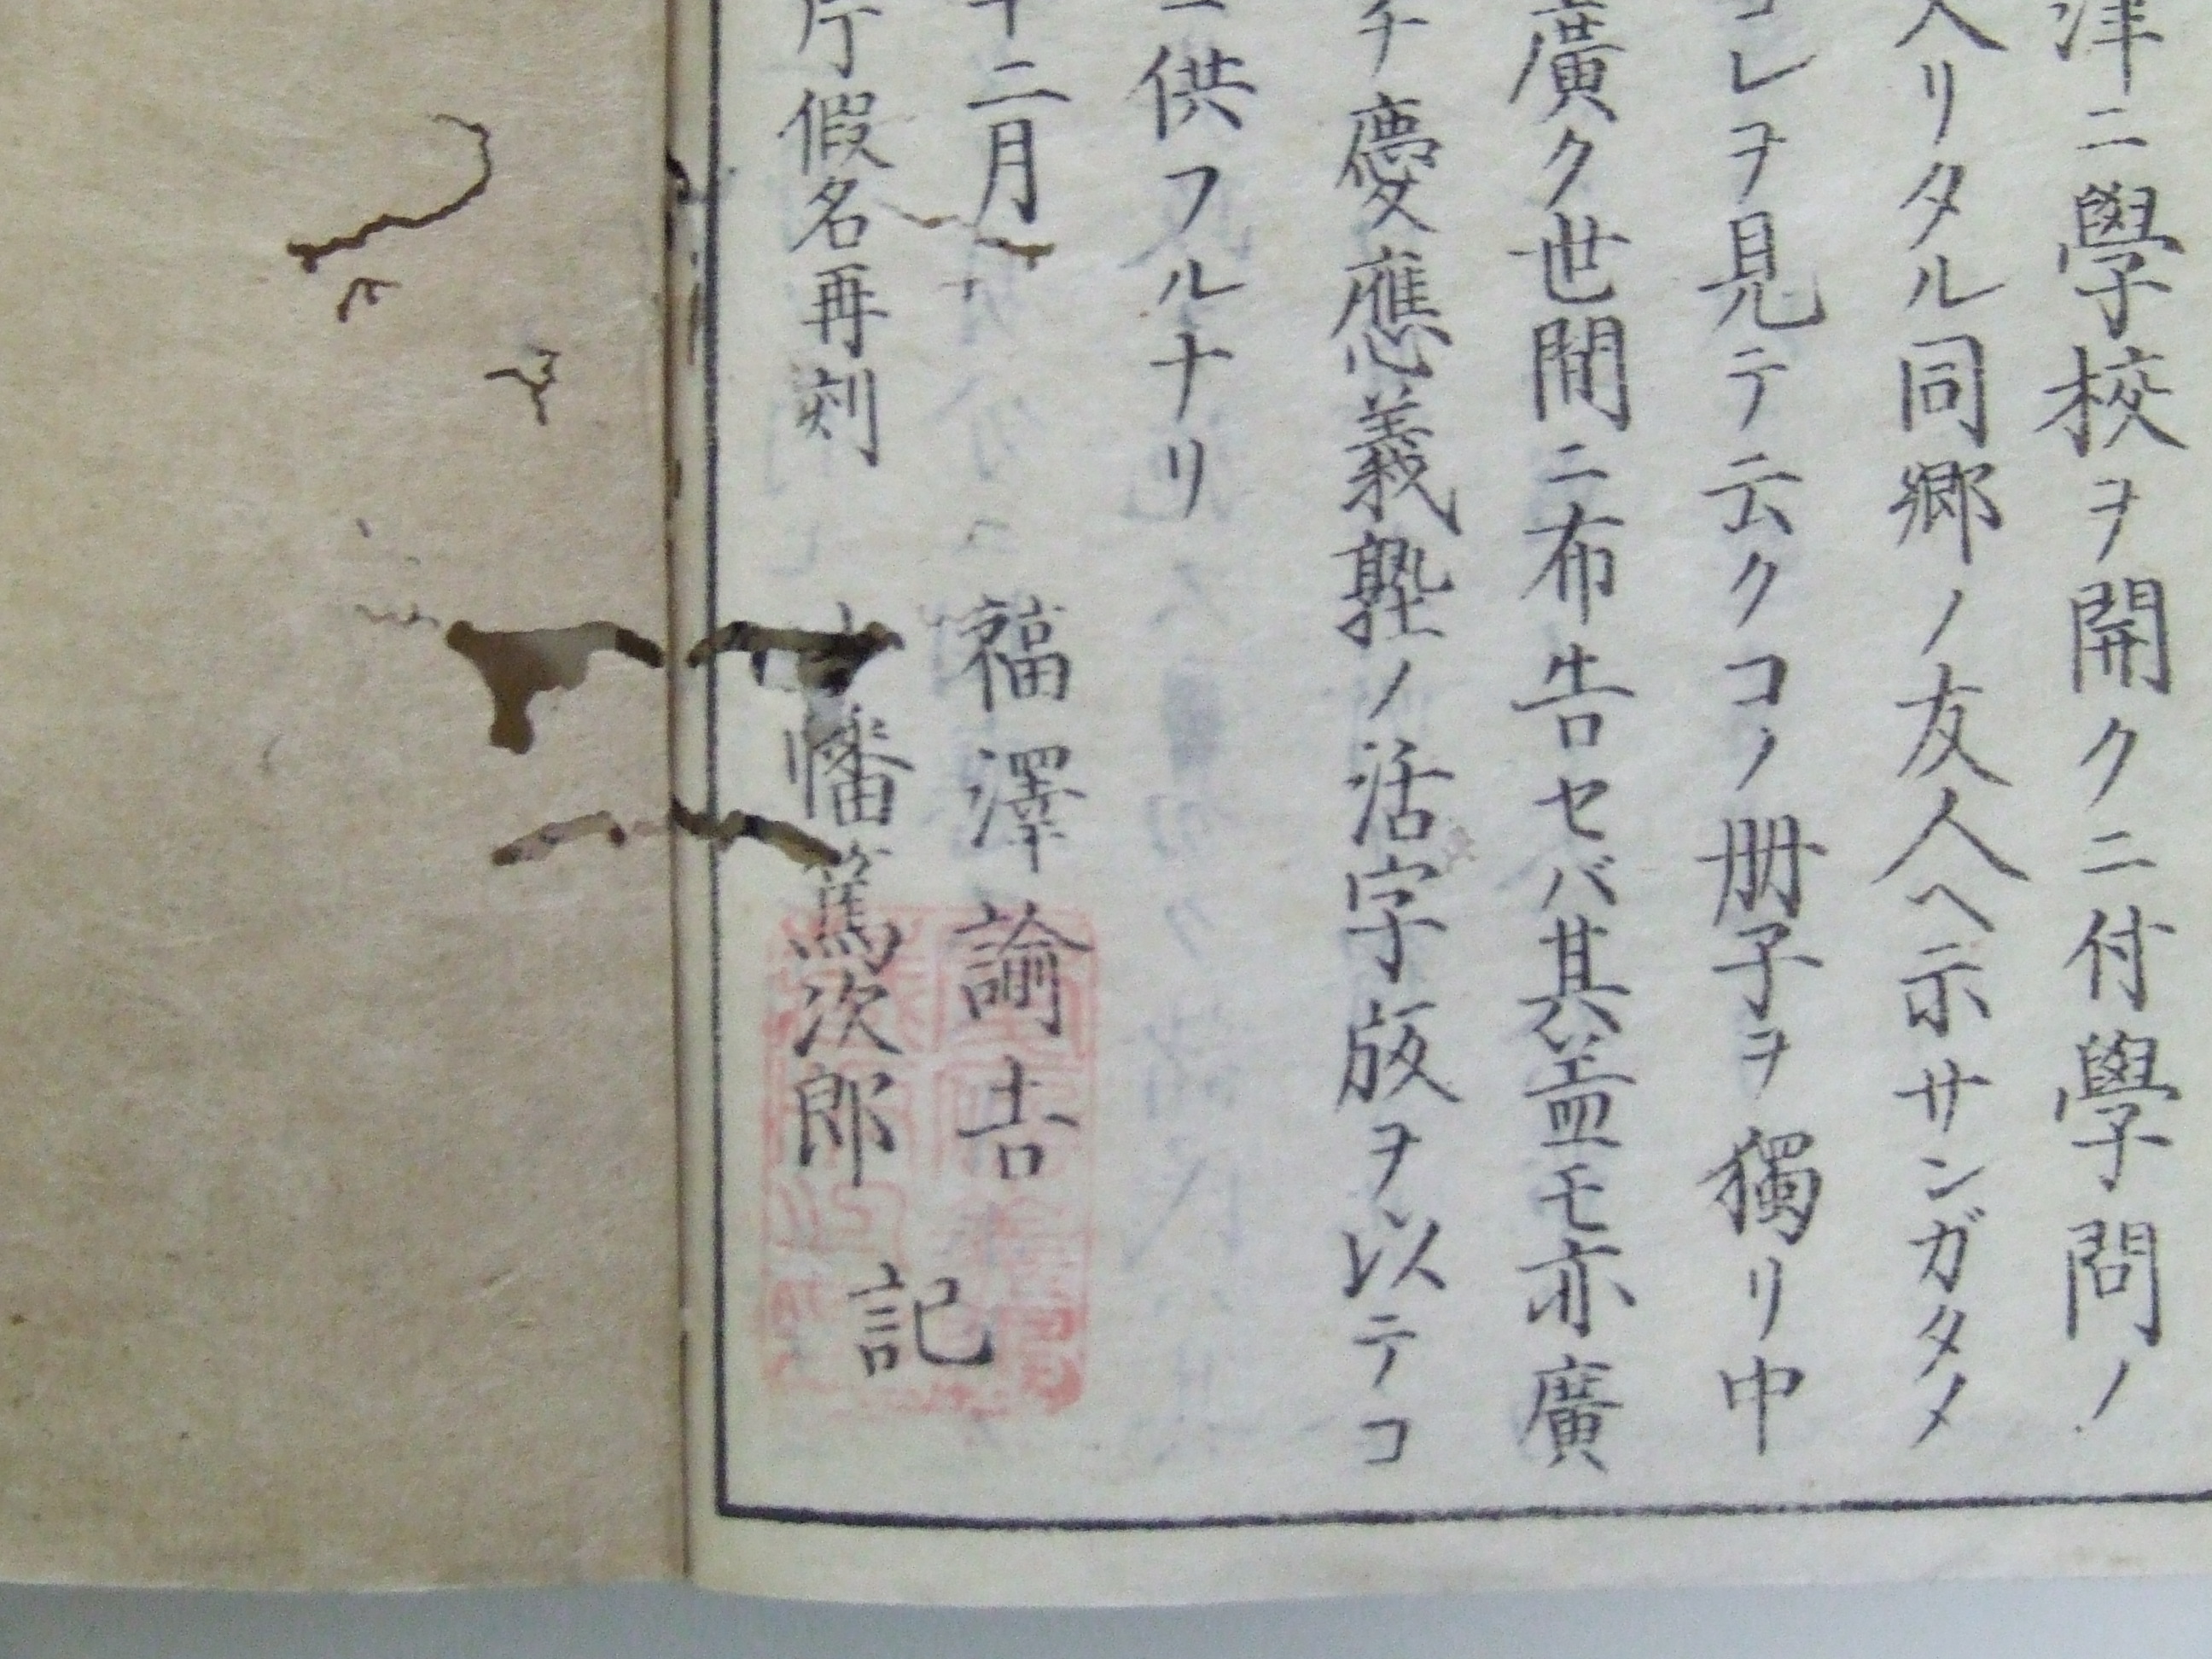 津ニ學校ヲ開クニ付學問ノ
入リタル同郷ノ友人ヘ示サンガタメ
コレヲ見テ云クコノ册子ヲ獨リ中
廣ク世間ニ布告セバ其益モ亦廣
チ慶應義塾ノ活字版ヲ以テコ
供フルナリ
十二月 福澤諭吉
片假名再刻 幡篤次郎
記